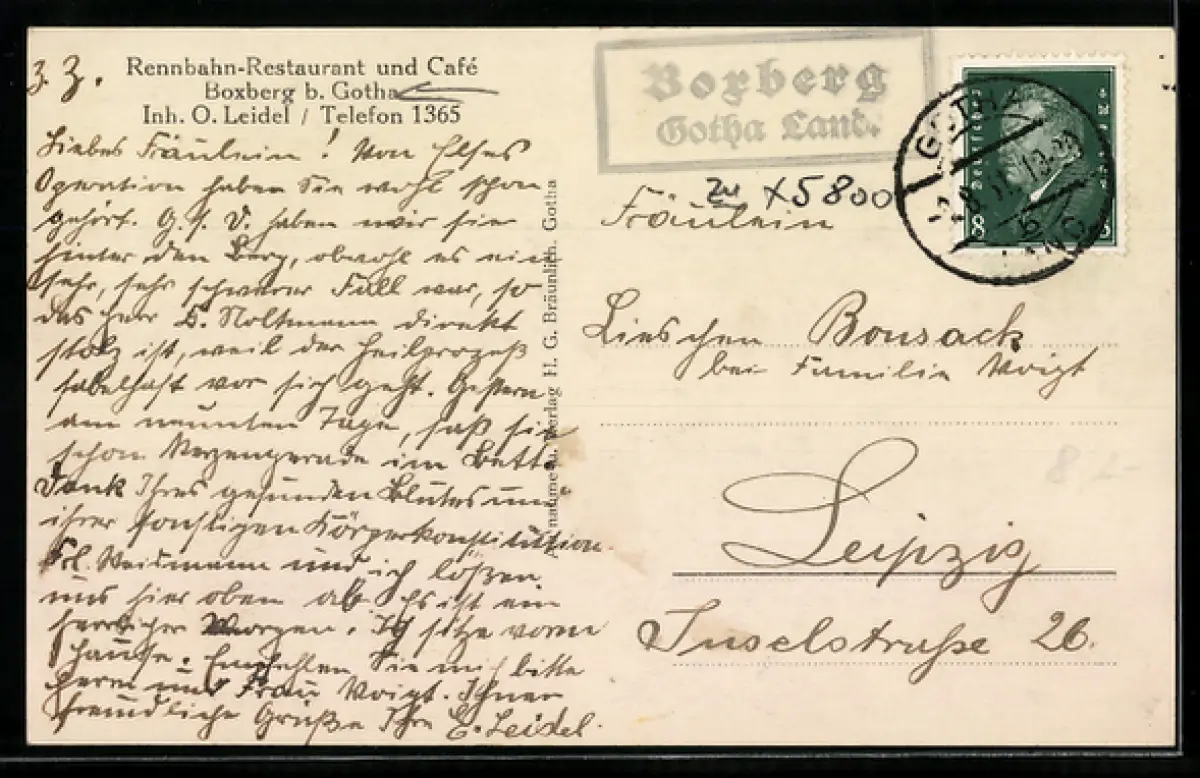 z. Z.
Rennbahn-Restaurant und Café
Boxberg b. Gotha
Inh. O. Leidel / Telefon 1365
Liebes Fräulein! Von Elses
Operation haben Sie wohl schon
gehört. G. s. D. haben wir sie
hinter den Berg, obwohl es ein
sehr, sehr schwerer Fall war, so
das Herr Noltmann direkt
stolz ist, weil der Heilprozeß
fabelhaft vor sich geht. Gestern
am neunten Tage, saß sie
schon kerzengerade im Bett.
Dank Ihres gesunden Blutes und
ihrer sonstigen Körperkonstitution.
Frl. und ich lösen
uns hier oben ab. Es ist ein
herrlicher Morgen. Ich sitze vorm
Hause. Empfehlen Sie mich bitte
Herrn und Frau Voigt. Ihnen
freundliche Grüße Ihre E. Leidel.
Verlag H. G. Bräunlich. Gotha
Boxberg
Gotha Land.
GOTHA
Deutsches Reich
8
zu x5800
Fräulein
Lieschen Bonsack
bei Familie Voigt
Leipzig
Inselstraße 26.